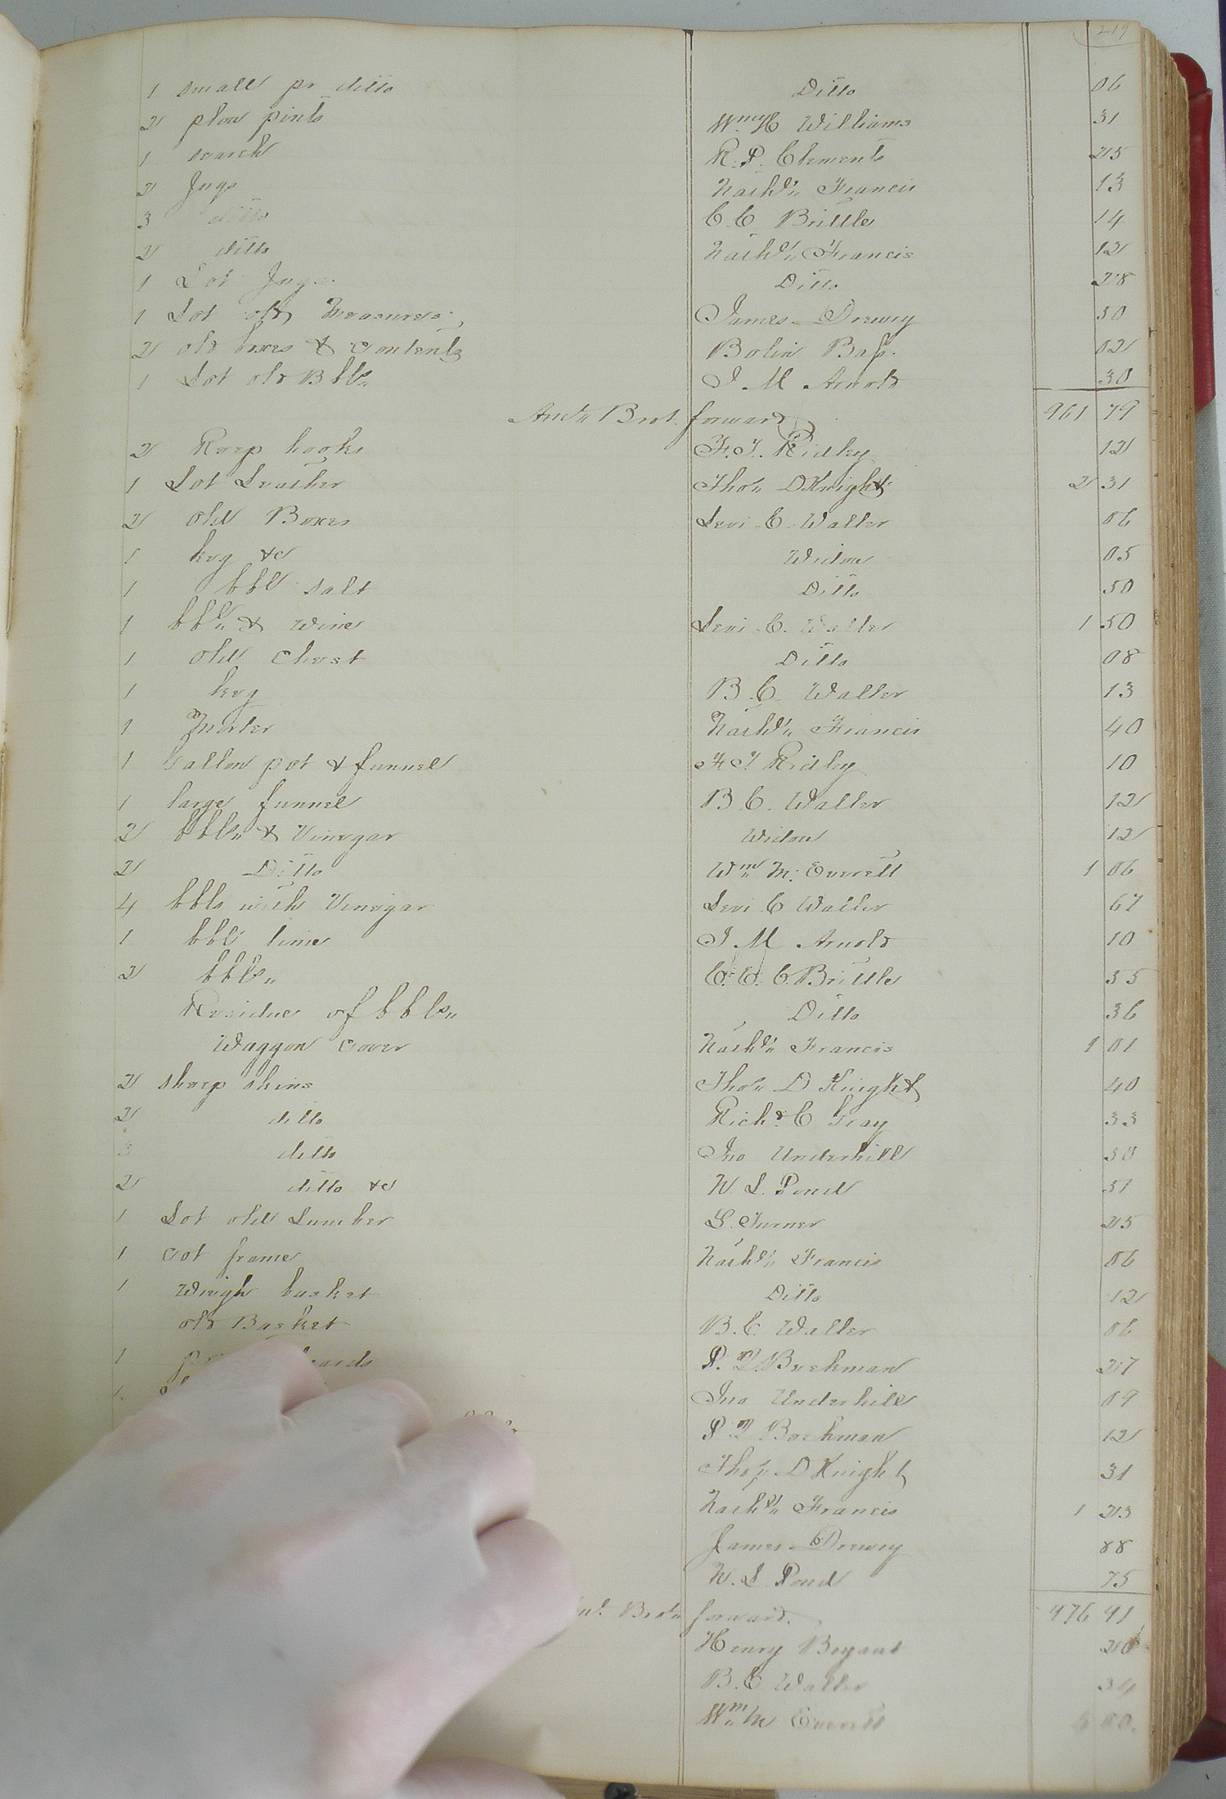 219
1 small pr ditto Ditto 06
2 plow pints Wm H Williams 31
1 search R. P. Clements 25
2 Jugs Nathl Francis 13
3 ditto C. C. Brittle 14
2 ditto Nathl Francis 12
1 Lot Jugs Ditto 28
1 Lot old Measures James Drewry 50
2 old boxes & Contents Bolin Bass 02
1 Lot old Bbls J. M Arnold 30
Amt Brot. forward 961 79
2 Reap hooks F. J. Ridley 12
1 Lot Leather Thos D Knight 2 31
2 old Boxes Levi C. Waller 06
1 keg &c Widow 05
1 bbl salt Ditto 50
1 bbl & wine Levi C. Waller 1 50
1 old chest Ditto 08
1 keg B. C. Waller 13
1 Nathl Francis 40
1 Gallon pot & funnel F J Ridley 10
1 large funnel B C. Waller 12
2 bbls & Vinegar Widow 12
2 Ditto Wm M. Everett 1 06
4 bbls with Vinegar Levi C Waller 67
1 bbl lime J M Arnold 10
2 bbls C. C. Brittle 35
Residue of bbls Ditto 36
Waggon Cover Nathl Francis 1 01
2 sheep skins Thos D Knight 40
2 ditto Richd C Gray 33
3 ditto Jno Underhill 30
2 ditto &c W L. Pond 31
1 Lot old Lumber G. Turner 25
1 Cot frame Nathl Francis 06
1 Weigh basket Ditto 12
old Basket B. C Waller 06
1 P. Bockman 27
1 Jno Underhill 09
P Bockman 12
Thos D Knight 31
Nathl Francis 1 23
James Drewry 88
W. L Pond 75
Brot forward. 976 91
Henry Bryant 20
B. C Waller 34
Wm M Everett